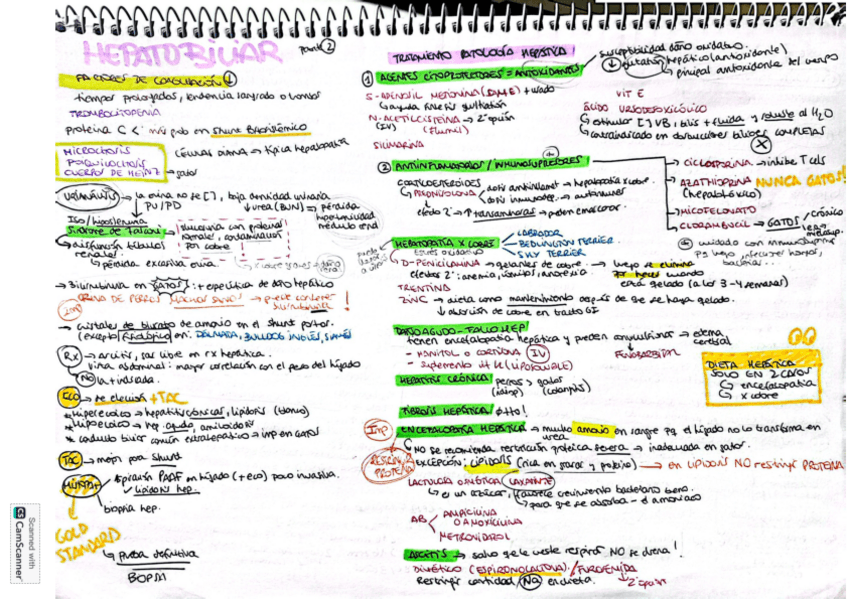 HEPATOBILIAR parte 2
FACTORES DE COAGULACIÓN ↓
tiempos prolongados, tendencia sangrado o
TROMBOCITOPENIA
proteína C < más prob en shunt
MICROCITOSIS
POIQUILOCITOSIS
CUERPOS DE HEINZ → gatos
CÉLULAS DIANA → típica hepatopatía
URIANÁLISIS → la orina no se [ ], baja densidad urinaria
PU/PD
↓ urea (BUN) → pérdida
hipertonicidad
médula renal
Iso/hipostenuria
Síndrome de Fanconi
→ disfunción túbulos
renales
↳ pérdida excesiva orina
glucosuria con
por cobre
→ Bilirrubina en GATOS: + específica de daño hepático
Imp ORINA DE PERROS MACHOS SANOS → puede contener
bilirrubina!
→ cristales de biurato de amonio en el shunt portos.
(excepto fisiológico en: DÁLMATA, BULLDOG INGLÉS,
Rx → ascitis, sar libre en rx hepática.
vena abdominal: mayor correlación con el peso del hígado
No lateralizada.
Eco → de elección + TAC
* Hiperecoico → hepatitis crónicas, lipidosis (blanco)
* Hipoecoico → hep. aguda, amiloidosis
* conducto biliar común extrahepático → imp en GATOS
TAC → mejor para shunt
→ Aspiración PAAF en hígado (+ eco) poco invasiva.
↓ lipidosis hep.
biopsia hep.
GOLD
STANDARD
↳ prueba definitiva
BOPSIA
TRATAMIENTO PATOLOGÍA HEPÁTICA
① AGENTES CITOPROTECTORES = ANTIOXIDANTES
susceptibilidad daño oxidativo.
↓ glutatión hepático (antioxidante)
↳ principal antioxidante del cuerpo
S-ADENOSIL METIONINA (SAME) + usado
↳ ayuda síntesis glutatión
N-ACETILCISTEÍNA → 2ª opción
(IV) (Fluimil)
SILIMARINA
VIT E
ÁCIDO URSODESOXICÓLICO
↳ estimular [ ] VB: bilis + fluida y soluble al H₂O
↳ contraindicado en obstrucciones biliares COMPLETAS
X
② ANTIINFLAMATORIOS / INMUNOSUPRESORES
CORTICOESTEROIDES
↳ PREDNISOLONA
→ dosis antiinflamat → hepatopatía x cobre.
→ dosis inmunosup. → autoinmunes
efecto 2º → ↑ transaminasas → pueden enmascarar.
→ CICLOSPORINA → inhibe T cells
→ AZATIOPRINA NUNCA GATOS!
(hepatotóxico)
→ MICOFELONATO
→ CLORAMBUCIL → GATOS
crónico
cuidado con
pq luego infecciones hongos,
bacterias...
HEPATOPATÍA X COBRE
estrés oxidativo
→ LABRADOR
→ BEDLINGTON TERRIER
→ SKY TERRIER
→ D-PENICILAMINA → quelantes de cobre. → luego se elimina
efectos 2º: anemia, vómitos, anorexia
por heces cuando
está quelado (a los 3-4 semanas)
TRENTINA
ZINC → dieta como mantenimiento después de que se haya quelado.
↓ absorción de cobre en tracto GI
DAÑO AGUDO - FALLO HEP
tienen encefalopatía hepática y pueden convulsionar → edema
cerebral
FENOBARBITAL
- MANITOL o CORTISONA IV
- suplemento vit K (LIPOSOLUBLE)
DIETA HEPÁTICA
SOLO EN 2 CASOS
↳ encefalopatía
↳ x cobre
HEPATITIS CRÓNICA perros > gatos
(idiop)
FIBROSIS HEPÁTICA
Imp ENCEFALOPATÍA HEPÁTICA → mucho amonio en sangre pq el hígado no lo transforma en
urea
RESTRIN
PROTEÍNA
NO se recomienda restricción proteica severa → inadecuada en gatos.
EXCEPCIÓN: LIPIDOSIS (rica en grasas y proteína) → en LIPIDOSIS NO restringir PROTEÍNA
LACTULOSA O MÉTICA LAXANTE
↳ es un azúcar, favorece crecimiento bacteriano bueno.
↳ para que se absorba - el amoniaco
AB
AMPICILINA
O AMOXICILINA
METRONIDAZOL
ASCITIS → salvo que le cueste respirar NO se drena!
Diurético (ESPIRONOLACTONA) / FUROSEMIDA
↳ 2ª opción
Restringir cantidad Na en dieta.
Scanned with
CS CamScanner